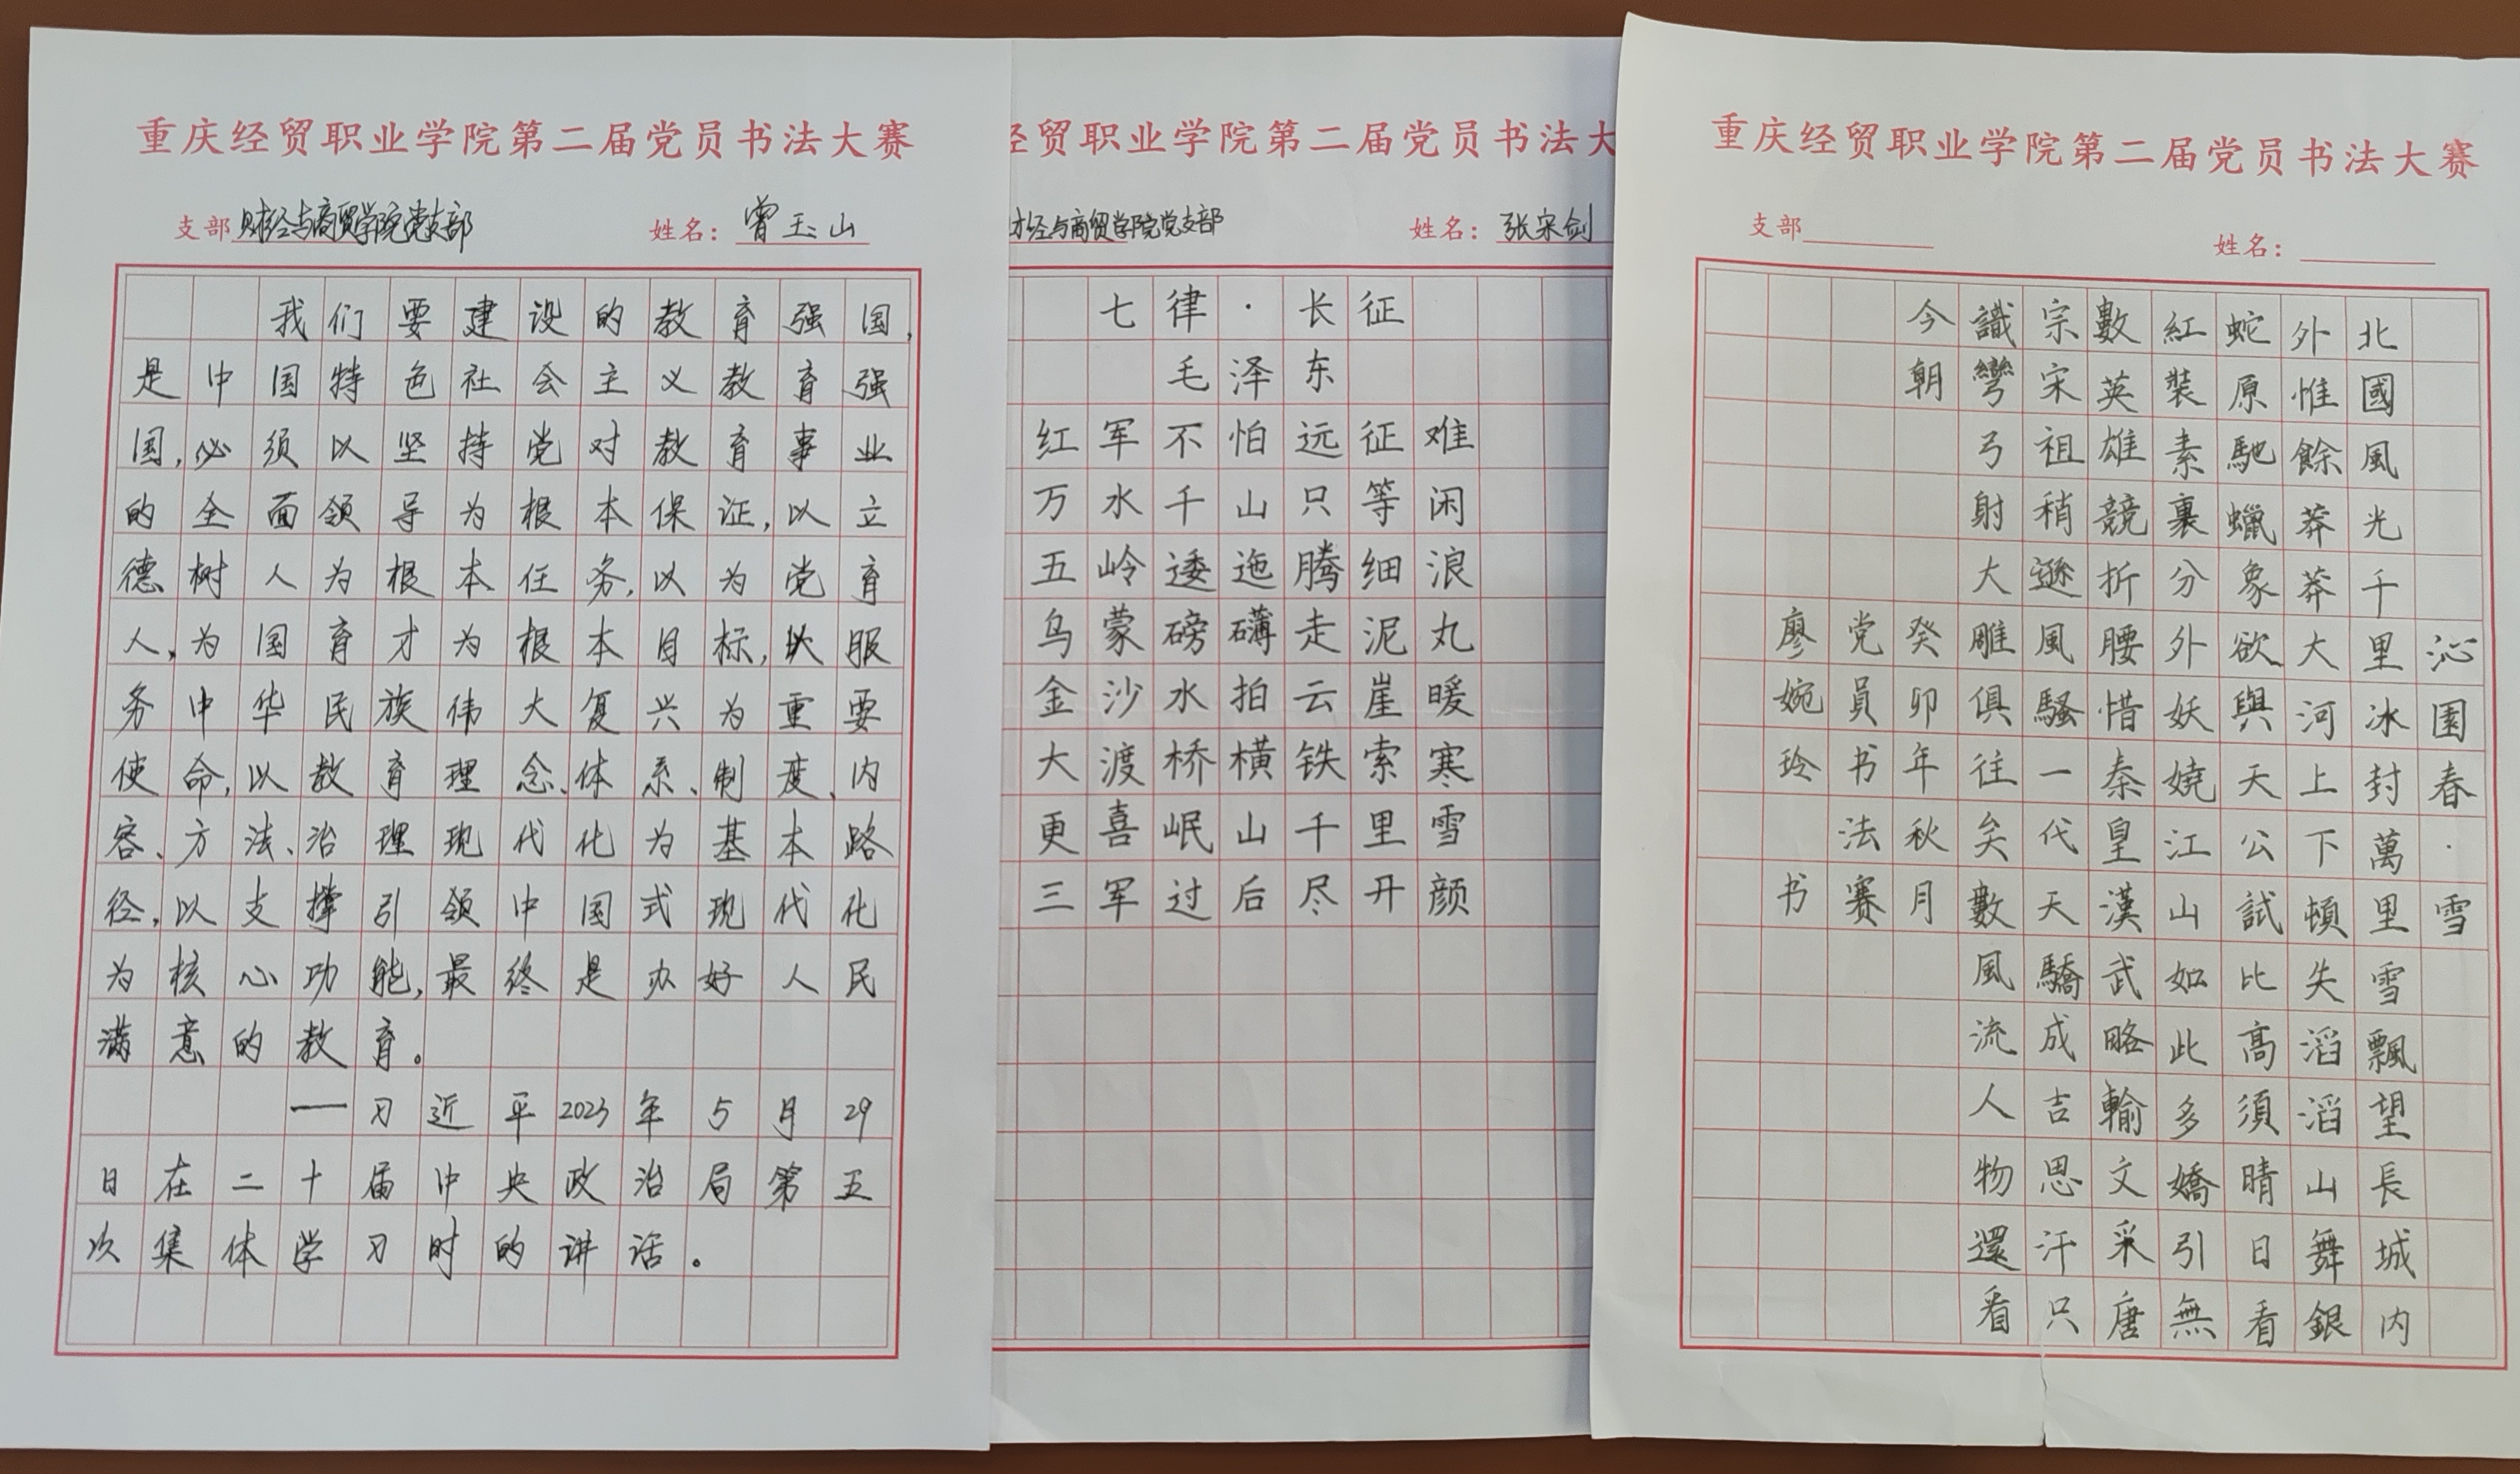 重庆经贸职业学院第二届党员书法大赛
支部 财经与商贸学院党支部 姓名：曾玉山
我们要建设的教育强国，
是中国特色社会主义教育强
国，必须以坚持党对教育事业
的全面领导为根本保证，以立
德树人为根本任务，以为党育
人，为国育才为根本目标，以服
务中华民族伟大复兴为重要
使命，以教育理念、体系、制度、内
容、方法、治理现代化为基本路
径，以支撑引领中国式现代化
为核心功能，最终是办好人民
满意的教育。
——习近平2023年5月29
日在二十届中央政治局第五
次集体学习时的讲话。
经贸职业学院第二届党员书法大
财经与商贸学院党支部 姓名：张宋剑
七律·长征
毛泽东
红军不怕远征难
万水千山只等闲
五岭逶迤腾细浪
乌蒙磅礴走泥丸
金沙水拍云崖暖
大渡桥横铁索寒
更喜岷山千里雪
三军过后尽开颜
重庆经贸职业学院第二届党员书法大赛
支部 姓名：
沁園春·雪
北國風光千里冰封萬里雪飄望長城内
外惟餘莽莽大河上下頓失滔滔山舞銀
蛇原馳蠟象欲與天公試比高須晴日看
紅裝素裏分外妖嬈江山如此多嬌引無
數英雄競折腰惜秦皇漢武略輸文采唐
宗宋祖稍遜風騷一代天驕成吉思汗只
識彎弓射大雕俱往矣數風流人物還看
今朝 癸卯年秋月
党員书法赛
廖婉玲 书